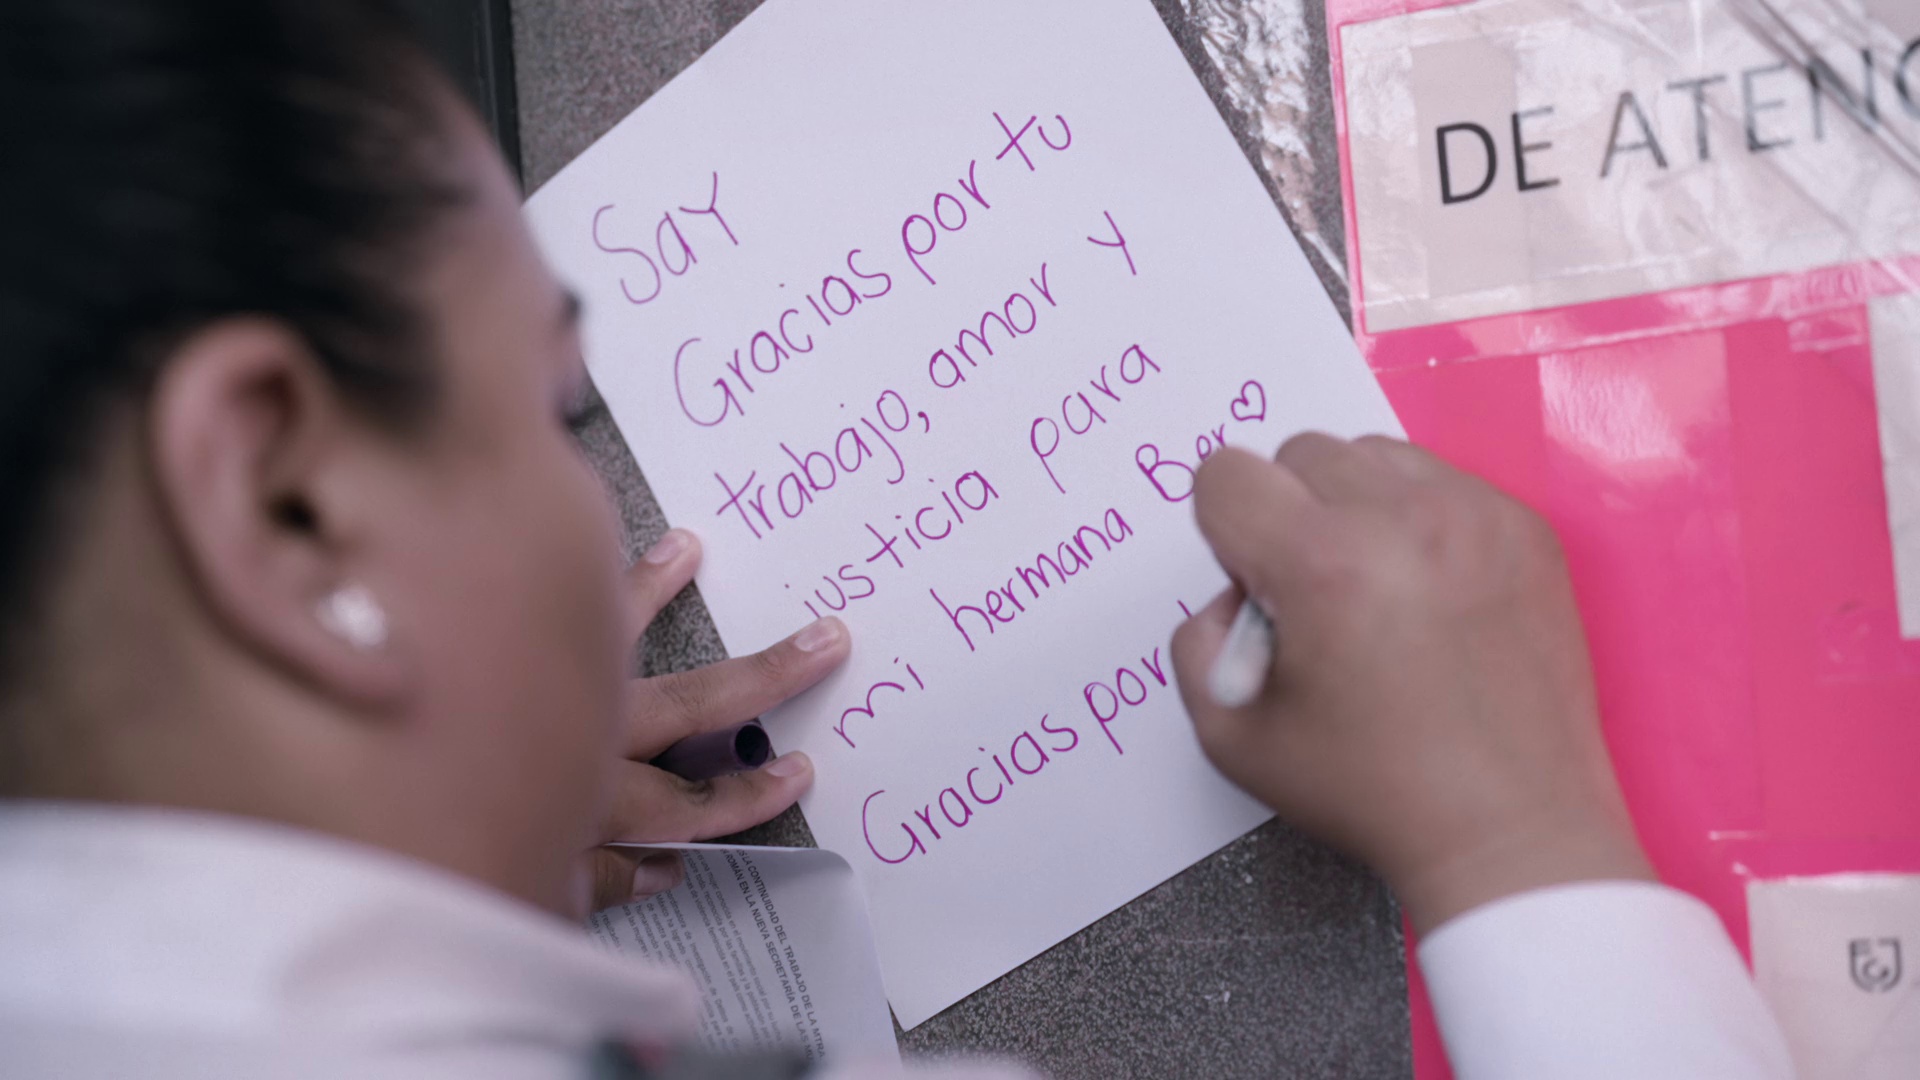 Say
Gracias por tu
trabajo, amor y
justicia para
mi hermana Ber♡
Gracias por
DE ATENC
LA CONTINUIDAD DEL TRABAJO DE LA MTRA
ROMÁN EN LA NUEVA SECRETARÍA DE LAS MU